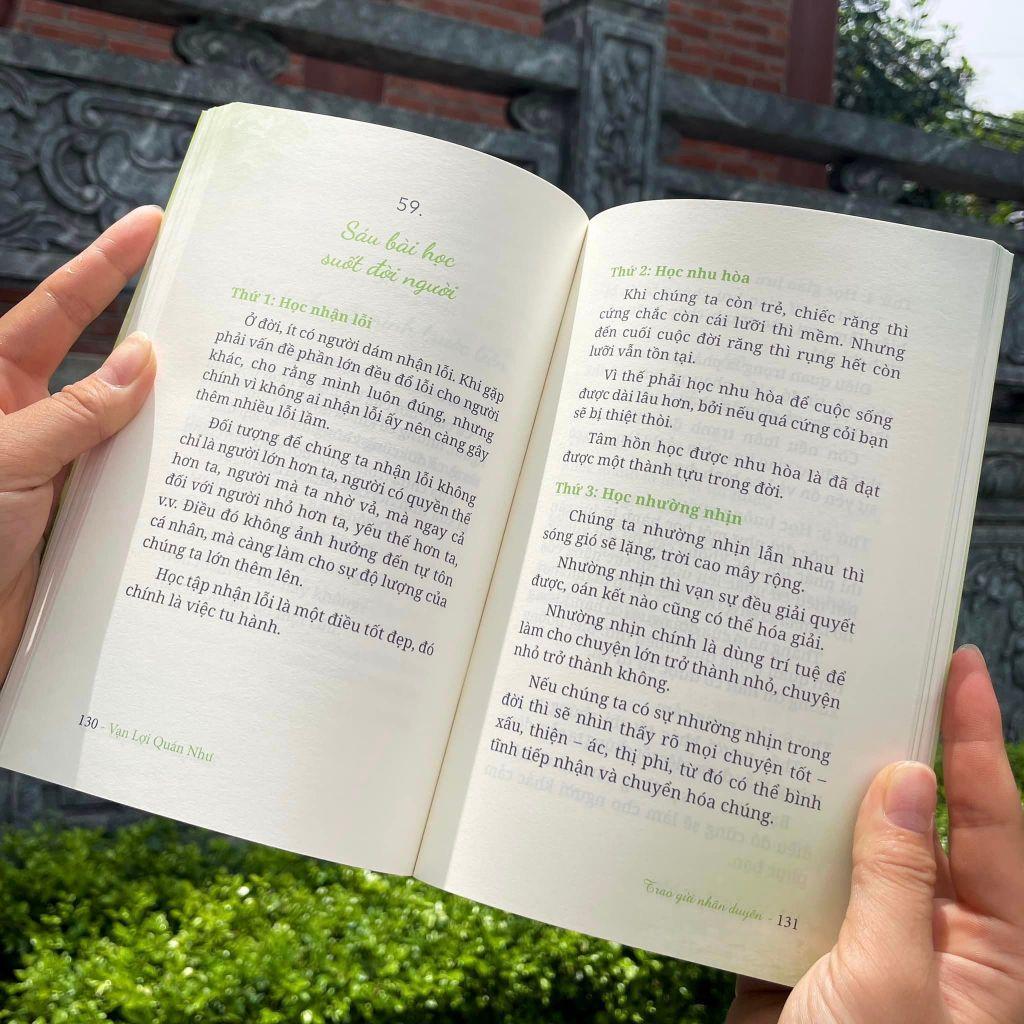 59.
Sáu bài học
suốt đời người
Thứ 1: Học nhận lỗi
Ở đời, ít có người dám nhận lỗi. Khi gặp
phải vấn đề phần lớn đều đổ lỗi cho người
khác, cho rằng mình luôn đúng, nhưng
chính vì không ai nhận lỗi ấy nên càng gây
thêm nhiều lỗi lầm.
Đối tượng để chúng ta nhận lỗi không
chỉ là người lớn hơn ta, người có quyền thế
hơn ta, người mà ta nhờ vả, mà ngay cả
đối với người nhỏ hơn ta, yếu thế hơn ta,
v.v. Điều đó không ảnh hưởng đến tự tôn
cá nhân, mà càng làm cho sự độ lượng của
chúng ta lớn thêm lên.
Học tập nhận lỗi là một điều tốt đẹp, đó
chính là việc tu hành.
130 - Vạn Lợi Quán Như
Thứ 2: Học nhu hòa
Khi chúng ta còn trẻ, chiếc răng thì
cứng chắc còn cái lưỡi thì mềm. Nhưng
đến cuối cuộc đời răng thì rụng hết còn
lưỡi vẫn tồn tại.
Vì thế phải học nhu hòa để cuộc sống
được dài lâu hơn, bởi nếu quá cứng cỏi bạn
sẽ bị thiệt thòi.
Tâm hồn học được nhu hòa là đã đạt
được một thành tựu trong đời.
Thứ 3: Học nhường nhịn
Chúng ta nhường nhịn lẫn nhau thì
sóng gió sẽ lặng, trời cao mây rộng.
Nhường nhịn thì vạn sự đều giải quyết
được, oán kết nào cũng có thể hóa giải.
Nhường nhịn chính là dùng trí tuệ để
làm cho chuyện lớn trở thành nhỏ, chuyện
nhỏ trở thành không.
Nếu chúng ta có sự nhường nhịn trong
đời thì sẽ nhìn thấy rõ mọi chuyện tốt –
xấu, thiện – ác, thị phi, từ đó có thể bình
tĩnh tiếp nhận và chuyển hóa chúng.
Trao gửi nhân duyên - 131